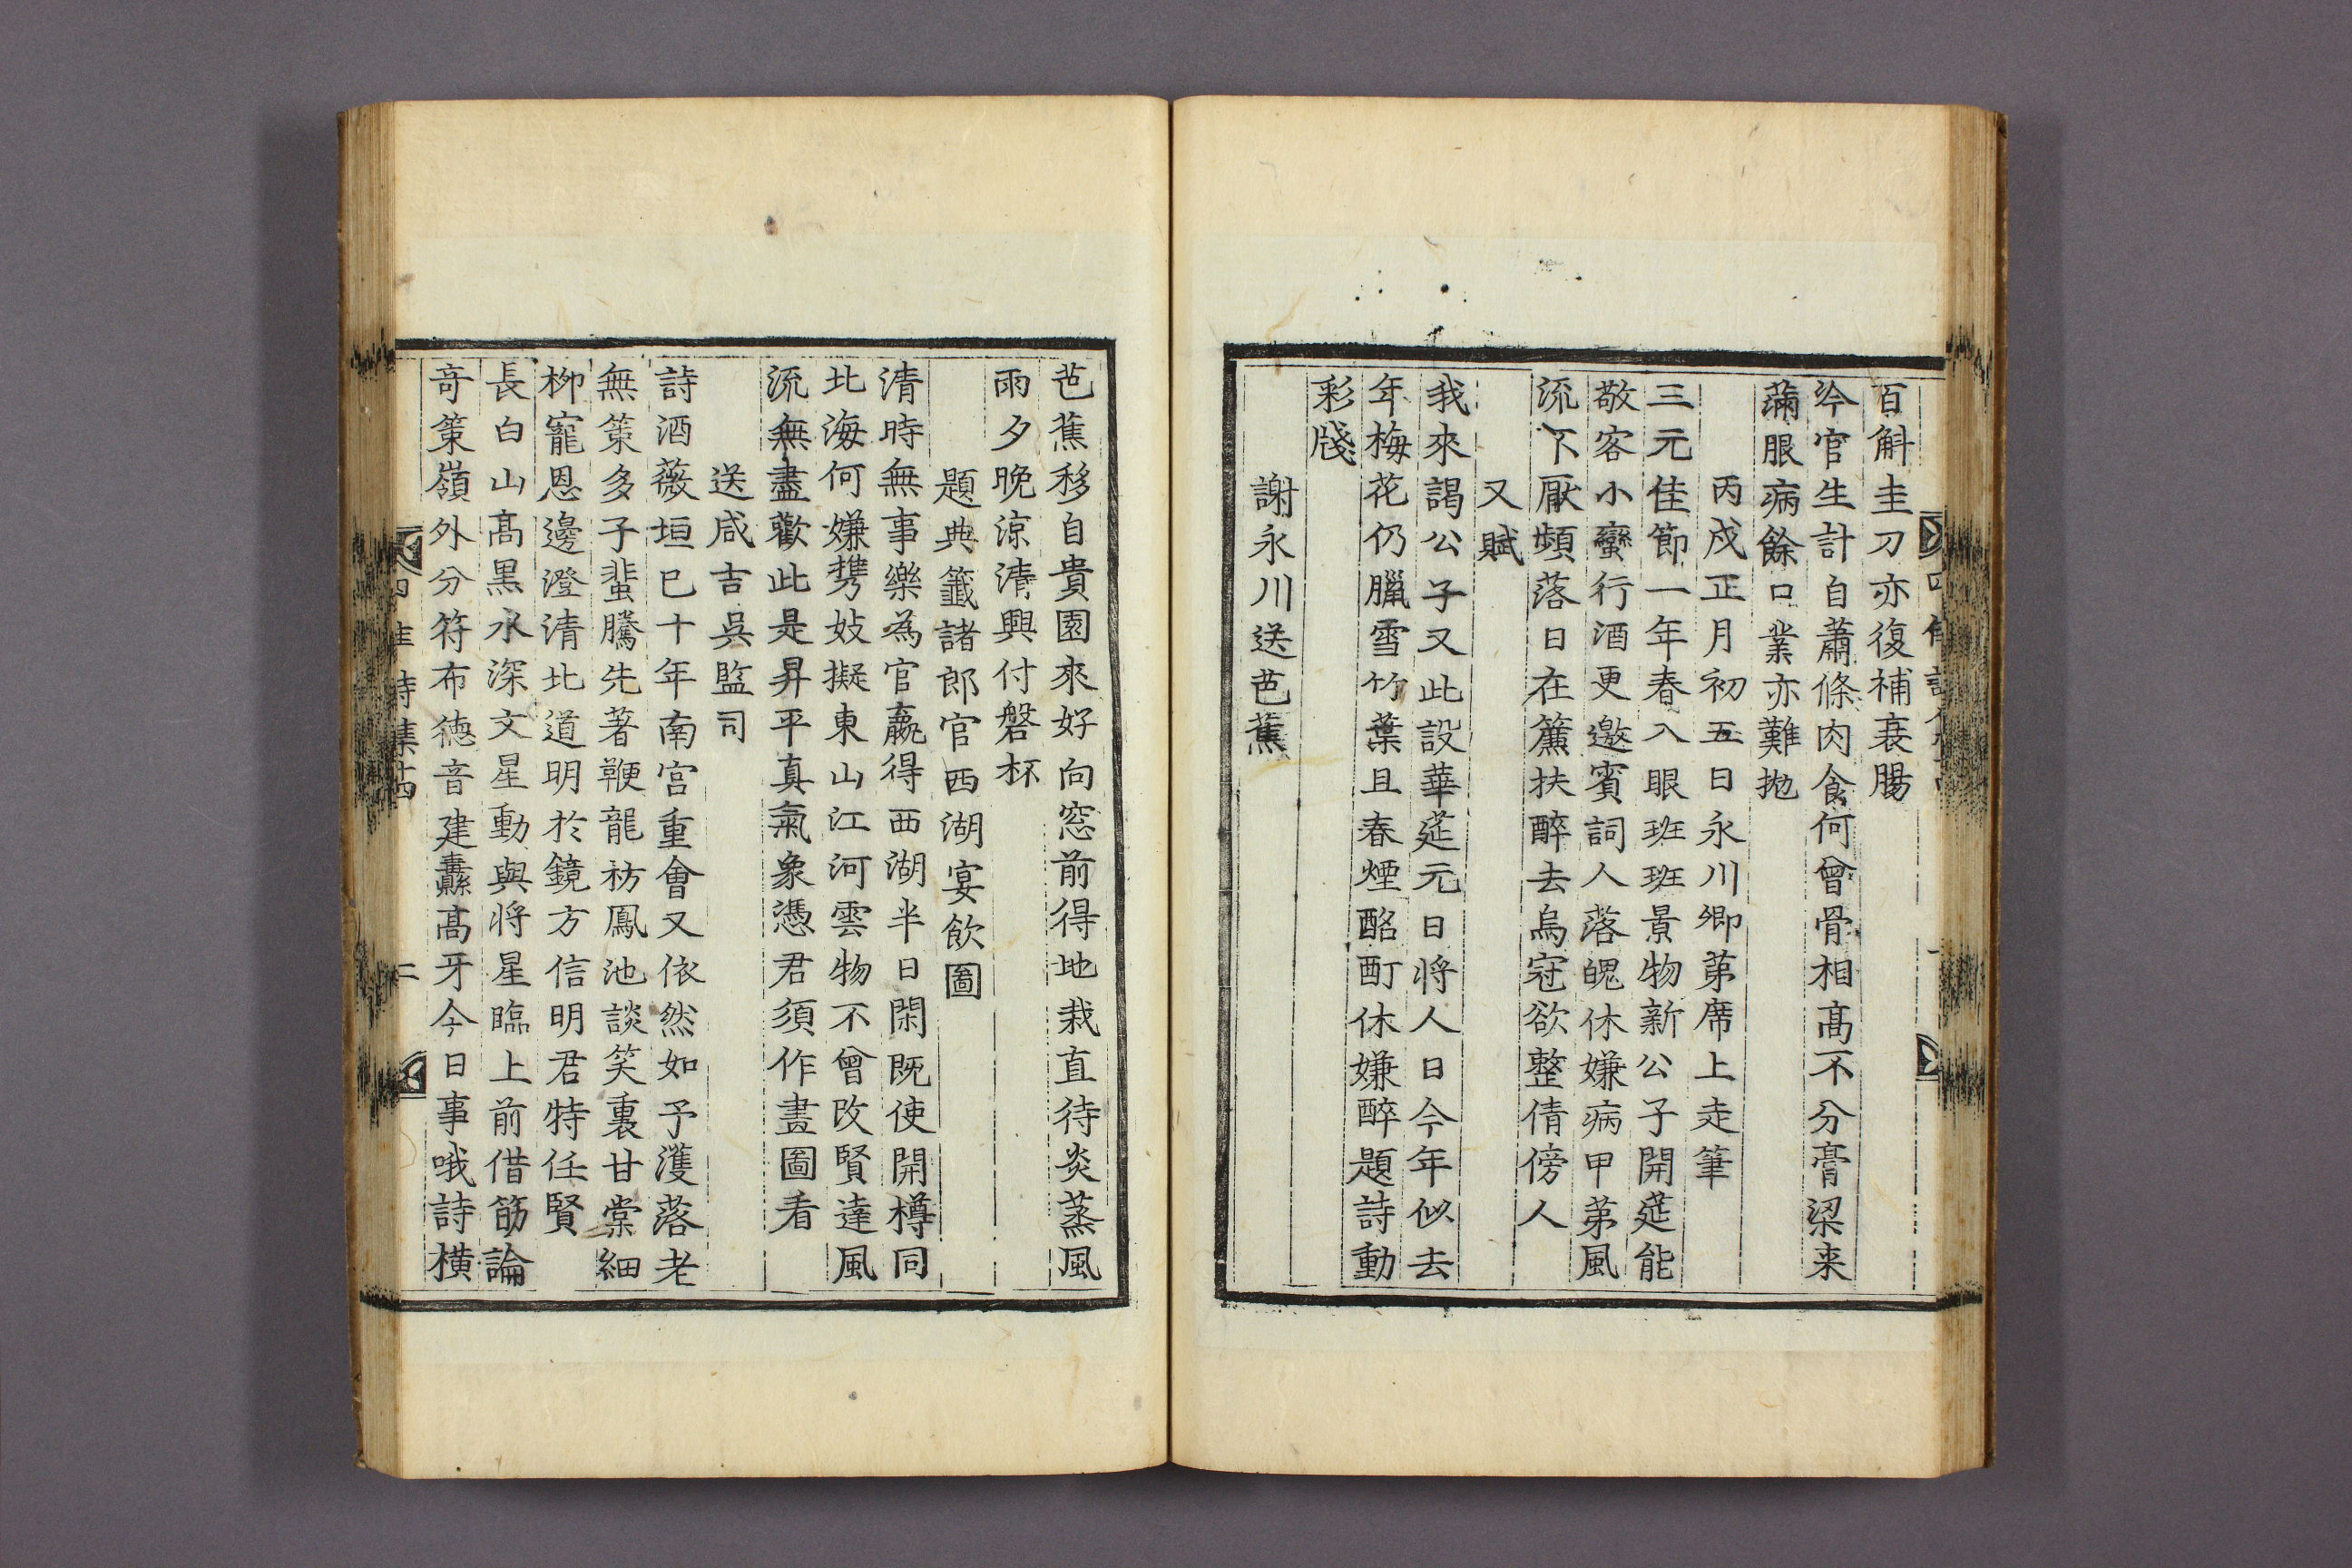 百斛圭刀亦復補衰腸
冷官生計自蕭條肉食何曾骨相高不分膏梁来
滿眼病餘口業亦難抛
丙戌正月初五日永川卿第席上走筆
三元佳節一年春入眼班班景物新公子開莚能
敬客小蠻行酒更邀賓詞人落魄休嫌病甲第風
流下厭頻落日在簾扶醉去烏冠欲整倩傍人
又賦
我來謁公子又此設華莚元日将人日今年似去
年梅花仍臘雪竹葉且春煙酩酊休嫌醉題詩動
彩牋
謝永川送芭蕉
芭蕉移自貴園來好向窓前得地栽直待炎蒸風
雨夕晚凉清興付磐杯
題典籤諸郎官西湖宴飲圖
清時無事樂為官贏得西湖半日閑既使開樽同
北海何嫌携妓擬東山江河雲物不曾改賢達風
流無盡歡此是昇平真氣象憑君須作畫圖看
送咸吉吳監司
詩酒薇垣已十年南宮重會又依然如予濩落老
無策多子蜚騰先著鞭龍衫鳳池談笑裏甘棠細
柳寵恩邊澄清北道明於鏡方信明君特任賢
長白山高黒水深文星動與將星臨上前借筯論
竒策嶺外分符布德音建纛高牙今日事哦詩橫
詩集
二